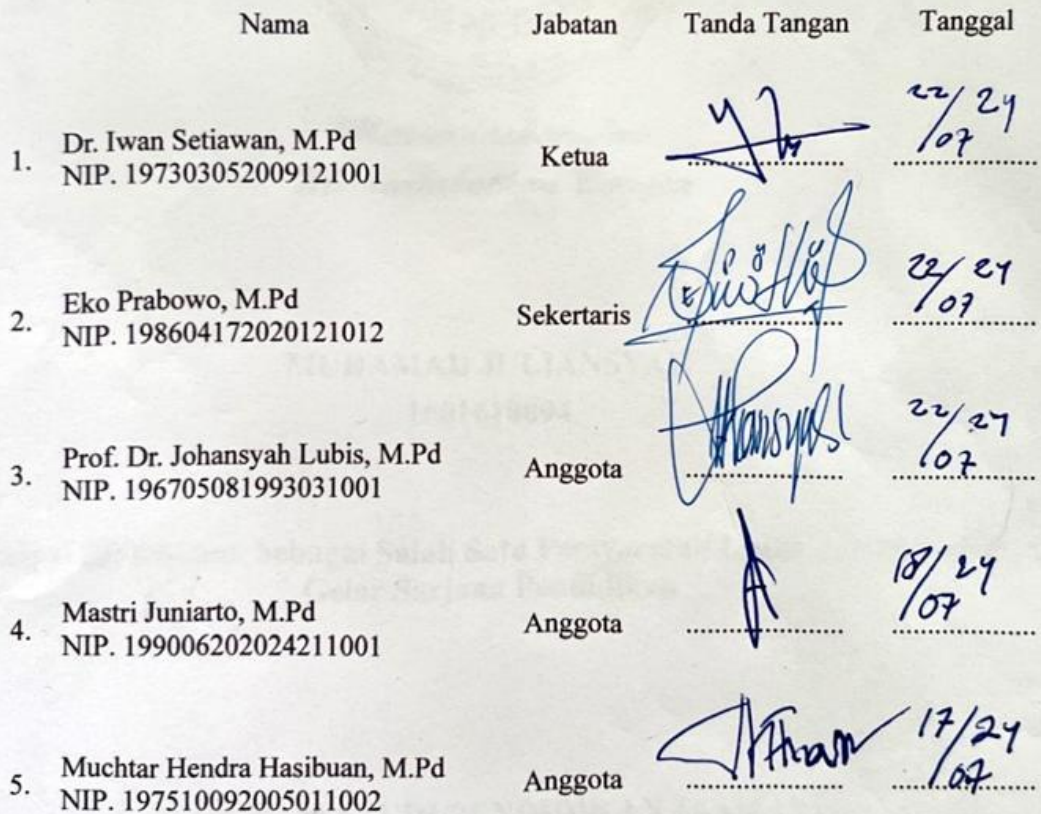 Nama Jabatan Tanda Tangan Tanggal
1. Dr. Iwan Setiawan, M.Pd
NIP. 197303052009121001 Ketua 22/07 24
2. Eko Prabowo, M.Pd
NIP. 198604172020121012 Sekertaris 22/07 24
3. Prof. Dr. Johansyah Lubis, M.Pd
NIP. 196705081993031001 Anggota 22/07 24
4. Mastri Juniarto, M.Pd
NIP. 199006202024211001 Anggota 18/07 24
5. Muchtar Hendra Hasibuan, M.Pd
NIP. 197510092005011002 Anggota 17/07 24